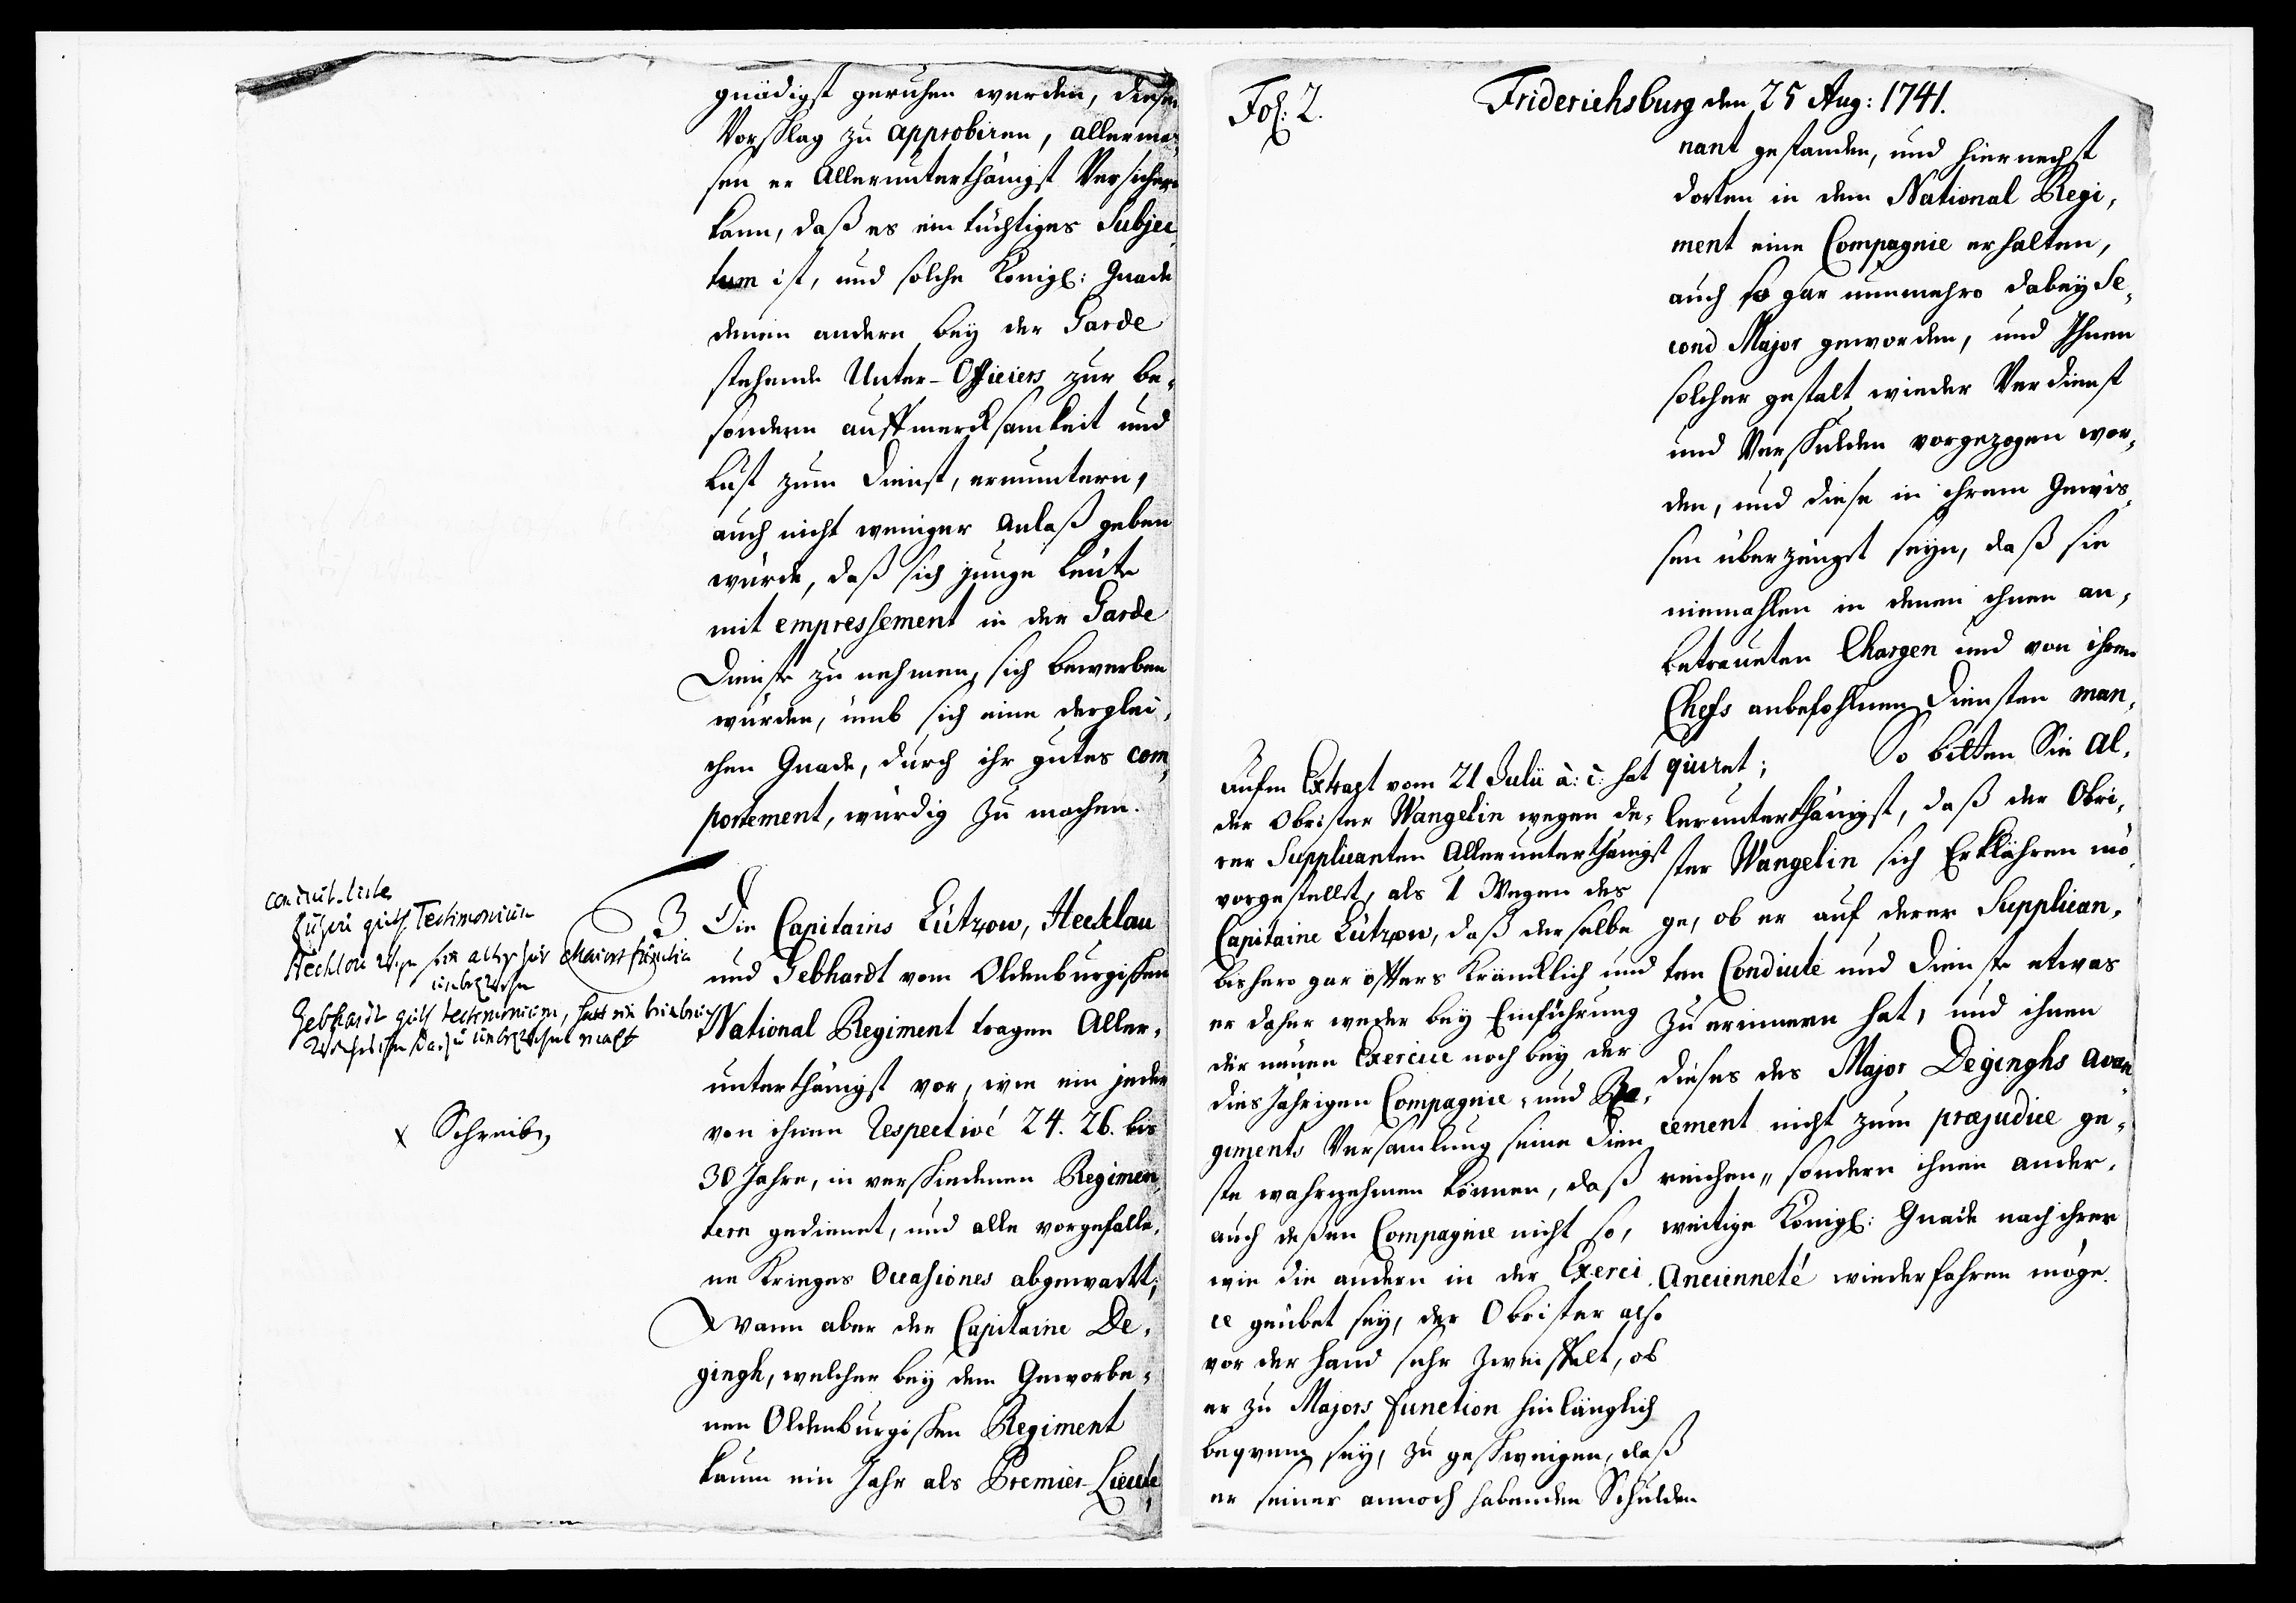 gnädigst geruhen werden, diesen
Vorschlag zu approbiren, allerma¬
sen er Allerunterthänigst Versichern
kann, daß es ein tüchtiges Subjec¬
tum ist, und solche Königl: Gnade
denen andern bey der Garde
stehende Unter-Officiers zur be¬
sondern auffmercksamkeit und
Lust zum Dienst, ermuntern,
auch nicht weniger anlaß geben
würde, daß sich junge Leute
mit empressement in der Garde
Dienste zu nehmen, sich bewerben
würden, umb sich eine derglei¬
chen Gnade, durch ihr gutes com¬
portement, würdig zu machen.
conduit-liste
guth Testimonium
Hechlou
Gebhardt guth testimonium,
x Schreib,
3 Die Capitains Lützow, Hecklau
und Gebhardt vom Oldenburgischen
National Regiment tragen Aller¬
unterthänigst vor, wie ein jeder
von ihnen respectivé 24. 26. bis
30 Jahre, in verschiedenen Regimen¬
tern gedienet, und alle vorgefalle¬
ne Krieges Occasiones abgewartt;
Wann aber der Capitaine De¬
gingh, welcher bey dem Geworbe¬
nen Oldenburgischen Regiment
kaum ein Jahr als Premier-Lieute¬
Fol: 2.
Friderichsburg den 25 Aug: 1741.
nant gestanden, und hiernechst
dorten in dem National Regi¬
ment eine Compagnie erhalten,
auch so gar nunmehro dabey Se¬
cond Major geworden, und Ihnen
solcher gestalt wieder Verdienst
und Verschulden vorgezogen wor¬
den, und diese in ihrem Gewis¬
sen überzeugt seyn, daß sie
niemahlen in denen ihnen an¬
betraueten Chargen und von ihren
Chefs anbefohlnen Diensten man¬
quiret; So bitten Sie al¬
lerunterthänigst, daß der Obri¬
ster Wangelin sich Erklähren mö¬
ge, ob er auf derer Supplican¬
ten Conduite und Dienste etwas
zu erinnern hat, und ihnen
dieses des Major Deginghs avan¬
cement nicht zum præjudice ge¬
reichen, sondern ihnen ander¬
weitige Königl: Gnade nach ihrer
Ancienneté wiederfahren möge.
Aufm Extract vom 21 Julii a: c: hat
der Obrister Wangelin wegen de¬
rer Supplicanten Allerunterthänigst
vorgestellet, als 1 Wegen des
Capitaine Lützow, daß derselbe
bishero gar öffters kräncklich und
er daher weder bey Einführung
der neuen Exercice noch bey der
diesjährigen Compagnie- und Re¬
giments Versamlung seine Dien
ste wahrnehmen können, daß
auch deßen Compagnie nicht so,
wie die andern in der Exerci¬
ce geübet sey, der Obrister also
vor der Hand sehr zweiffelt, ob
er zu Majors function hinlänglich
bequem sey, zu geschweigen, daß
er seiner annoch habenden Schulden